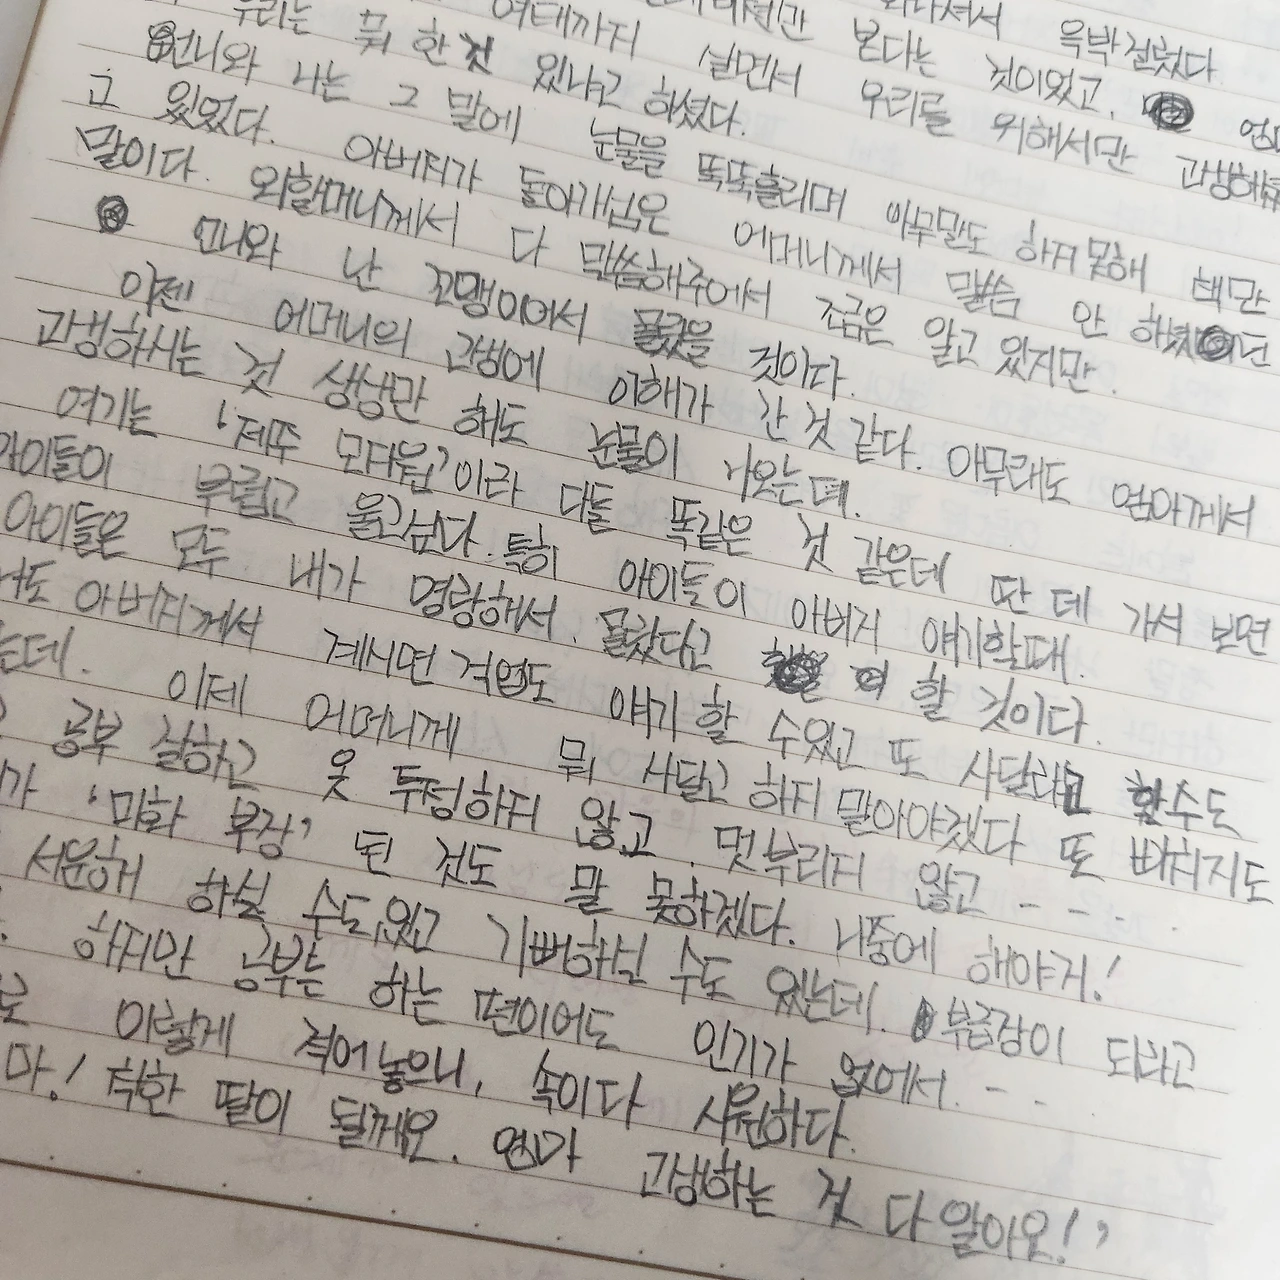 본다는 것이었고, 윽박질렀다
우리는 뭐 한 것 있냐고 하셨다. 여태까지 살면서 우리를 위해서만 고생해
언니와 나는 그 말에 눈물을 뚝뚝흘리며 아무말도 하지못해 책만
고 있었다. 아버지가 돌아가신은 어머니께서 말씀 안 하셨던
말이다. 외할머니께서 다 말씀해주어서 조금은 알고 있지만.
언니와 난 꼬맹이어서 몰랐을 것이다.
이젠 어머니의 고생에 이해가 간 것 같다. 아무래도 엄마께서
고생하시는 것 생상만 해도 눈물이 나오는데.
여기는 '제주 모다원'이라 다들 똑같은 것 같은데 딴 데 가서 보면
아이들이 부럽고 울고싶다. 특히 아이들이 아버지 얘기할때.
아이들은 모두 내가 명랑해서. 몰랐다고 할 것이다.
도 아버지께서 계시면 직업도 얘기 할 수있고 또 사달라고 할수도
는데. 이제 어머니께 뭐 사달고 하지 말아야겠다 또 삐치지도
공부 잘하고 옷 투정하지 않고 멋부리지 않고 - - -
가 '미화 부장' 된 것도 말 못하겠다. 나중에 해야지!
서운해 하실 수도있고 기뻐하실 수도 있는데. 부급장이 되라고
하지만 공부는 하는 편이어도 인기가 없어서. - - .
로 이렇게 적어놓으니, 속이다 시원하다.
마! 착한 딸이 될께요. 엄마 고생하는 것 다 알아요!'